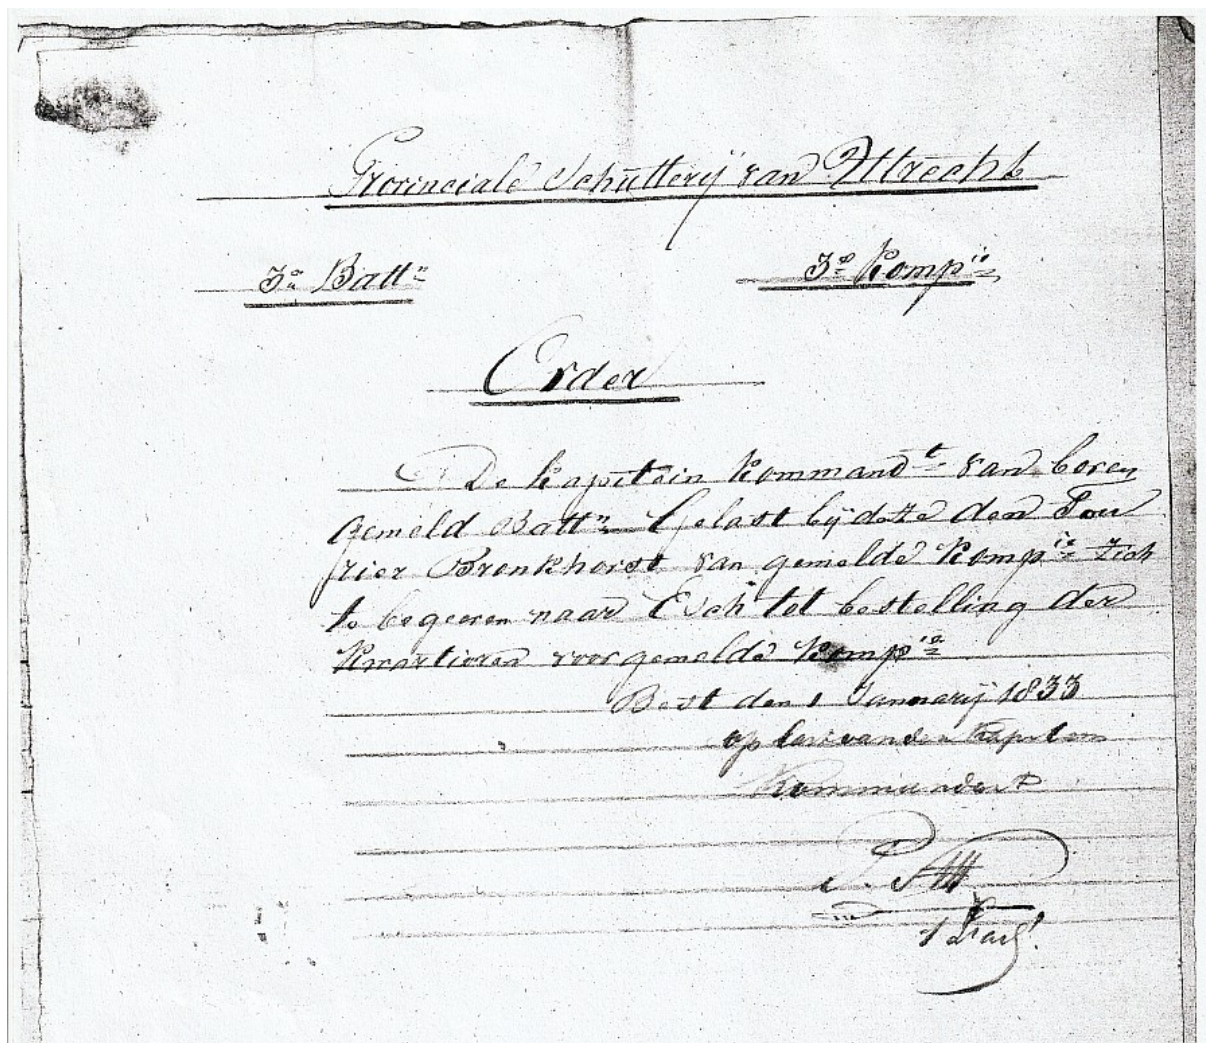 Provinciale Schutterij van Uttrecht
3e Battn
3e Kompie
Order
De Kapitein Kommandt van boven
gemeld Battn Gelast bij deze den Fou
rier Bronkhorst van gemelde Kompie zich
te begeeren naar Esch tot bestelling der
Kwartieren voor gemelde Kompie
Best den 1 Januarij 1833
op last van den Kapitein
Kommandant